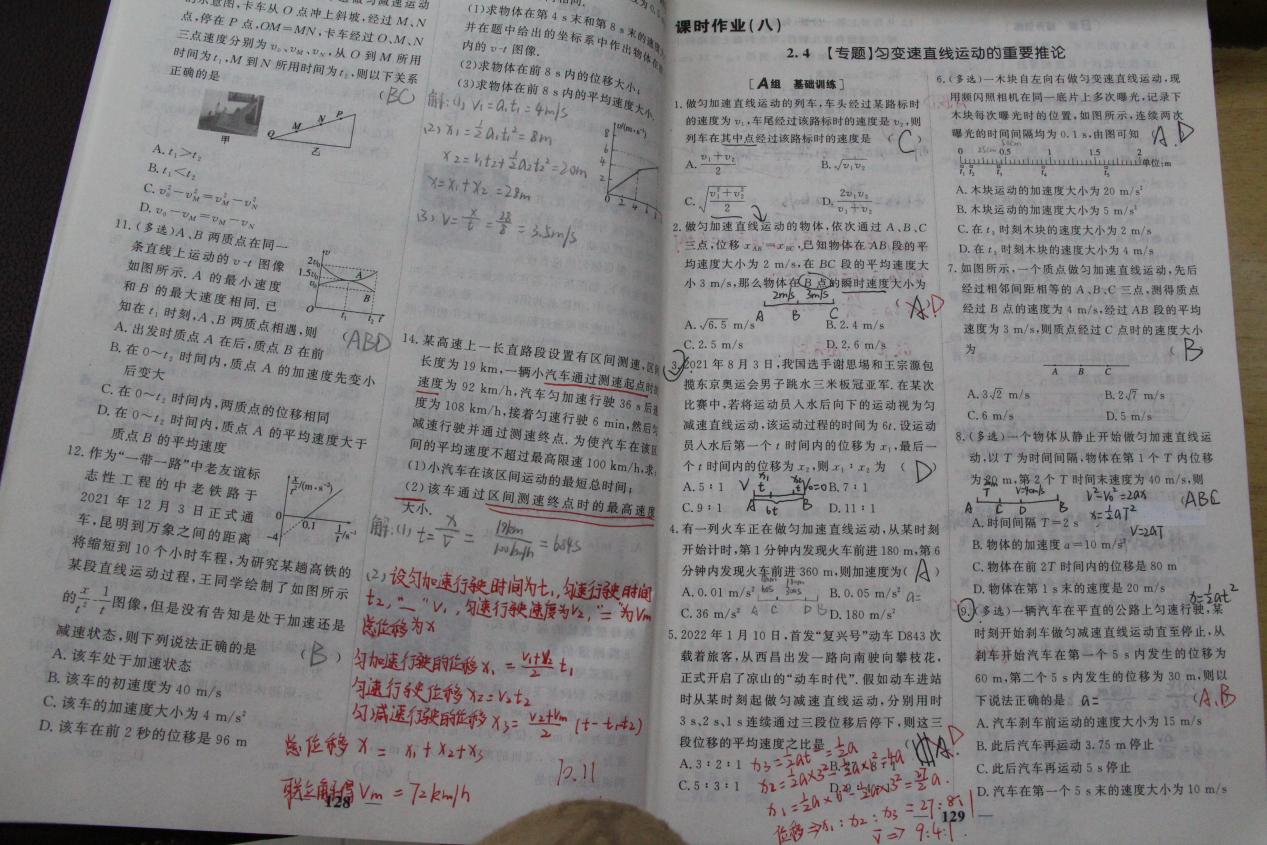 点,停在P点,OM=MN,卡车经过O、M、N
三点速度分别为v₀、v_M、v_N,从O到M所用
时间为t₁,M到N所用时间为t₂,则以下关系
正确的是
(BC)
甲
乙
A. t₁>t₂
B. t₁<t₂
C. v₀²-v_M²=v_M²-v_N²
D. v₀-v_M=v_M-v_N
11. (多选)A、B两质点在同一
条直线上运动的v-t图像
如图所示. A的最小速度
和B的最大速度相同. 已
知在t₁时刻,A、B两质点相遇,则
(ABD
A. 出发时质点A在后,质点B在前
B. 在0~t₂时间内,质点A的加速度先变小
后变大
C. 在0~t₂时间内,两质点的位移相同
D. 在0~t₂时间内,质点A的平均速度大于
质点B的平均速度
12. 作为“一带一路”中老友谊标
志性工程的中老铁路于
2021年12月3日正式通
车,昆明到万象之间的距离
将缩短到10个小时车程,为研究某趟高铁的
某段直线运动过程,王同学绘制了如图所示
的x/t²-1/t图像,但是没有告知是处于加速还是
减速状态,则下列说法正确的是 (B)
A. 该车处于加速状态
B. 该车的初速度为40 m/s
C. 该车的加速度大小为4 m/s²
D. 该车在前2秒的位移是96 m
(1)求物体在第4s末和第8s末的速度
并在题中给出的坐标系中作出物体在
内的v-t图像.
(2)求物体在前8s内的位移大小;
(3)求物体在前8s内的平均速度大小.
解:(1) v₁=a₁t₁=4m/s
(2) x₁=½a₁t₁²=8m
x₂=v₁t₂+½a₂t₂²=20m
x=x₁+x₂=28m
(3) v=x/t=28/8=3.5m/s
14. 某高速上一长直路段设置有区间测速,区间
长度为19 km,一辆小汽车通过测速起点时的
速度为92 km/h,汽车匀加速行驶36 s后速
度为108 km/h,接着匀速行驶6 min,然后匀
减速行驶并通过测速终点. 为使汽车在该区
间的平均速度不超过最高限速100 km/h,求:
(1)小汽车在该区间运动的最短总时间;
(2)该车通过区间测速终点时的最高速度
大小.
解:(1) t=x/v=19km/100km/h=684s
(2) 设匀加速行驶时间为t₁,匀速行驶时间
t₂,“—”v₁,匀速行驶速度为v₂,“=”为vm
总位移为x
匀加速行驶的位移x₁=(v₁+v₂)/2 t₁
匀速行驶位移x₂=v₂t₂
匀减速行驶的位移x₃=(v₂+vm)/2 (t-t₁-t₂)
总位移x=x₁+x₂+x₃
10.11
联立解得vm=72km/h
128
课时作业(八)
2.4 【专题】匀变速直线运动的重要推论
[A组 基础训练]
1. 做匀加速直线运动的列车,车头经过某路标时
的速度为v₁,车尾经过该路标时的速度是v₂,则
列车在其中点经过该路标时的速度是 (C)
A. (v₁+v₂)/2 B. √(v₁v₂)
C. √((v₁²+v₂²)/2) D. 2v₁v₂/(v₁+v₂)
2. 做匀加速直线运动的物体,依次通过A、B、C
三点,位移x_AB=x_BC,已知物体在AB段的平
均速度大小为2 m/s,在BC段的平均速度大
小3 m/s,那么物体在B点的瞬时速度大小为
2m/s 3m/s
A B C
A. √6.5 m/s B. 2.4 m/s
C. 2.5 m/s D. 2.6 m/s
3. 2021年8月3日,我国选手谢思埸和王宗源包
揽东京奥运会男子跳水三米板冠亚军. 在某次
比赛中,若将运动员入水后向下的运动视为匀
减速直线运动,该运动过程的时间为6t. 设运动
员入水后第一个t时间内的位移为x₁,最后一
个t时间内的位移为x₂,则x₁∶x₂为 (D)
A. 5∶1 B. 7∶1
C. 9∶1 D. 11∶1
4. 有一列火车正在做匀加速直线运动,从某时刻
开始计时,第1分钟内发现火车前进180 m,第6
分钟内发现火车前进360 m,则加速度为(A)
A. 0.01 m/s² B. 0.05 m/s²
C. 36 m/s² D. 180 m/s²
5. 2022年1月10日,首发“复兴号”动车D843次
载着旅客,从西昌出发一路向南驶向攀枝花,
正式开启了凉山的“动车时代”. 假如动车进站
时从某时刻起做匀减速直线运动,分别用时
3 s、2 s、1 s连续通过三段位移后停下,则这三
段位移的平均速度之比是
A. 3∶2∶1
C. 5∶3∶1
x₃=½at²=½a
x₂=½a×3²-½a×1²=4a
x₁=½a×6²-½a×3²=27/2 a.
位移⇒x₁:x₂:x₃=27:8:1
v̄⇒9:4:1
6. (多选)一木块自左向右做匀变速直线运动,现
用频闪照相机在同一底片上多次曝光,记录下
木块每次曝光时的位置,如图所示,连续两次
曝光的时间间隔均为0.1 s,由图可知
A.D
0 0.5 1 1.5 2 单位:m
t₁ t₂ t₃ t₄ t₅
A. 木块运动的加速度大小为20 m/s²
B. 木块运动的加速度大小为5 m/s²
C. 在t₁时刻木块的速度大小为2 m/s
D. 在t₁时刻木块的速度大小为4 m/s
7. 如图所示,一个质点做匀加速直线运动,先后
经过相邻间距相等的A、B、C三点,测得质点
经过B点的速度为4 m/s,经过AB段的平均
速度为3 m/s,则质点经过C点时的速度大小
为 (B
A B C
A. 3√2 m/s B. 2√7 m/s
C. 6 m/s D. 5 m/s
8. (多选)一个物体从静止开始做匀加速直线运
动,以T为时间间隔,物体在第1个T内位移
为20 m,第2个T时间末速度为40 m/s,则
(ABC
v²-v₀²=2ax
x=½aT²
v=2aT
A. 时间间隔T=2 s
B. 物体的加速度a=10 m/s²
C. 物体在前2T时间内的位移是80 m
D. 物体在第1 s末的速度是20 m/s
x=½at²
9. (多选)一辆汽车在平直的公路上匀速行驶,某
时刻开始刹车做匀减速直线运动直至停止,从
刹车开始汽车在第一个5 s内发生的位移为
60 m,第二个5 s内发生的位移为30 m,则以
下说法正确的是 a= (A.B
A. 汽车刹车前运动的速度大小为15 m/s
B. 此后汽车再运动3.75 m停止
C. 此后汽车再运动5 s停止
D. 汽车在第一个5 s末的速度大小为10 m/s
129